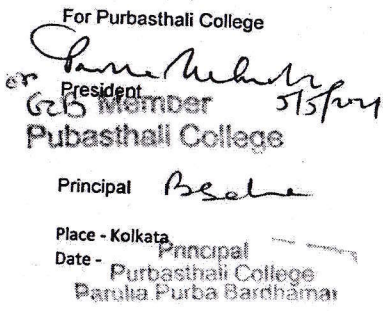 For Purbasthali College
President
or GB Member 5/5/2021
Pubasthali College
Principal
Place - Kolkata
Principal
Date -
Purbasthali College
Parulia Purba Bardhaman